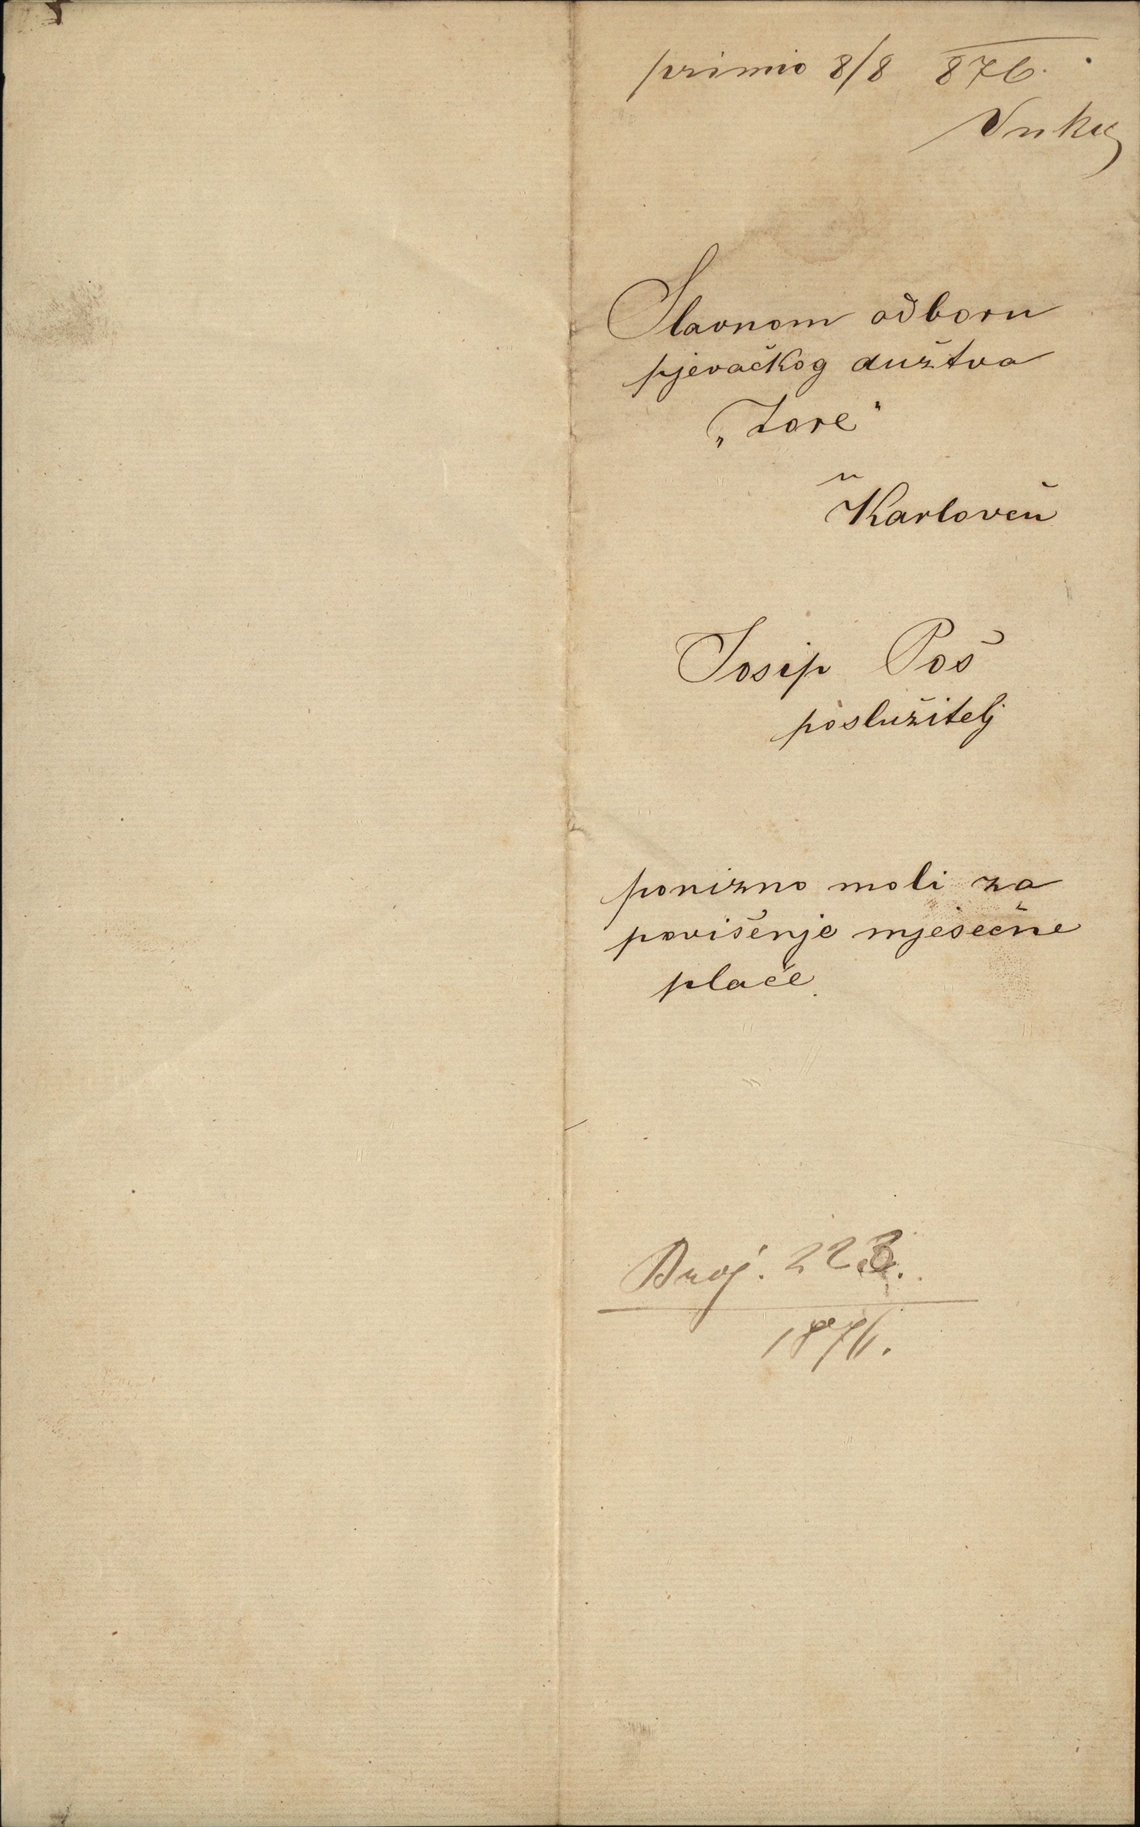 primio 8/8 876.
Slavnom odboru
pjevačkog družtva
„Zore“
u
Karlovcu
Josip Poš
poslužitelj
ponizno moli za
povišenje mjesečne
plaće.
Broj. 223.
1876.